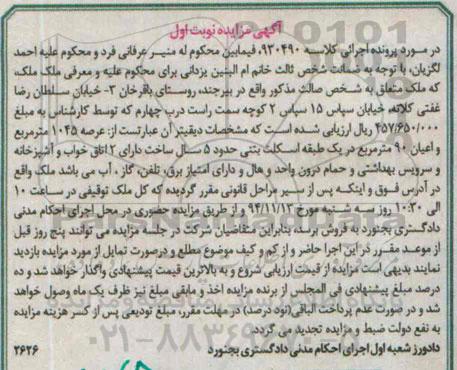 آگهی مزایده نوبت اول
در مورد پرونده اجرائی کلاسه ۹۳۰۴۹۰، فیمابین محکوم له منیر عرفانی فرد و محکوم علیه احمد
لگزیان، با توجه به ضمانت شخص ثالث خانم ام البنین یزدانی برای محکوم علیه و معرفی ملک ملکت
که ملک متعلق به شخص صالث مذکور واقع در بیرجند، روستای باقرخان ۳- خیابان سلطان رضا
غفتی کلاته، خیابان سپاس ۱۵ سپاس ۲ کوچه سمت راست درب چهارم که توسط کارشناس به مبلغ
۴۵۷/۶۵۰/۰۰۰ ریال ارزیابی شده است که مشخصات دقیقتر آن عبارتست از: عرصه ۱۰۴۵ مترمربع
و اعیان ۹۰ مترمربع در یک طبقه اسکلت بتنی حدود ۵ سال ساخت دارای ۲ اتاق خواب و آشپزخانه
و سرویس بهداشتی و حمام درون واحد و هال و دارای امتیاز برق، تلفن، گاز ، آب می باشد ملک واقع
در آدرس فوق و اینکه پس از سیر مراحل قانونی مقرر گردیده که کل ملک توقیفی در ساعت ۱۰
الی ۱۰:۳۰ روز سه شنبه مورخ ۹۴/۱۱/۱۳ و از طریق مزایده حضوری در محل اجرای احکام مدنی
دادگستری بجنورد به فروش برسد، بنابراین متقاضیان شرکت در جلسه مزایده می توانند پنج روز قبل
از موعد مقرر در این اجرا حاضر و از کم و کیف موضوع مطلع و درصورت تمایل از مورد مزایده بازدید
نمایند بدیهی است مزایده از قیمت ارزیابی شروع و به بالاترین قیمت پیشنهادی واگذار خواهد شد و ده
درصد مبلغ پیشنهادی فی المجلس از برنده مزایده اخذ و مابقی مبلغ نیز ظرف یک ماه وصول خواهد
شد و در صورت عدم پرداخت الباقی(نود درصد) در مهلت مقرر، مبلغ تودیعی پس از کسر هزینه مزایده
به نفع دولت ضبط و مزایده تجدید می گردد.
دادورز شعبه اول اجرای احکام مدنی دادگستری بجنورد ۲۶۲۶
۰۲۱-۸۸۳۴۹۶۷۰